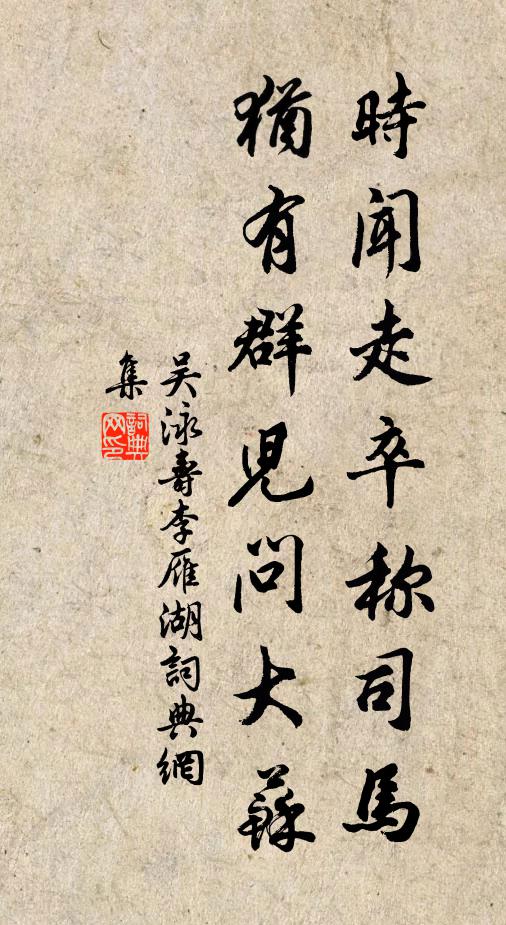 時聞走卒称司馬
猶有群児問大蘇
吴泳壽李雁湖詞典網
集
詞典網印